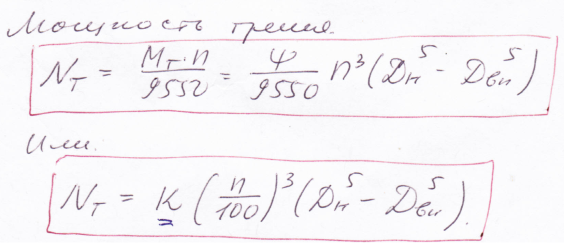 Мощность трения.
N_T = M_T·n / 9550 = ψ / 9550 n³ (Д_н⁵ - Д_вн⁵)
Или
N_T = K (n / 100)³ (Д_н⁵ - Д_вн⁵).